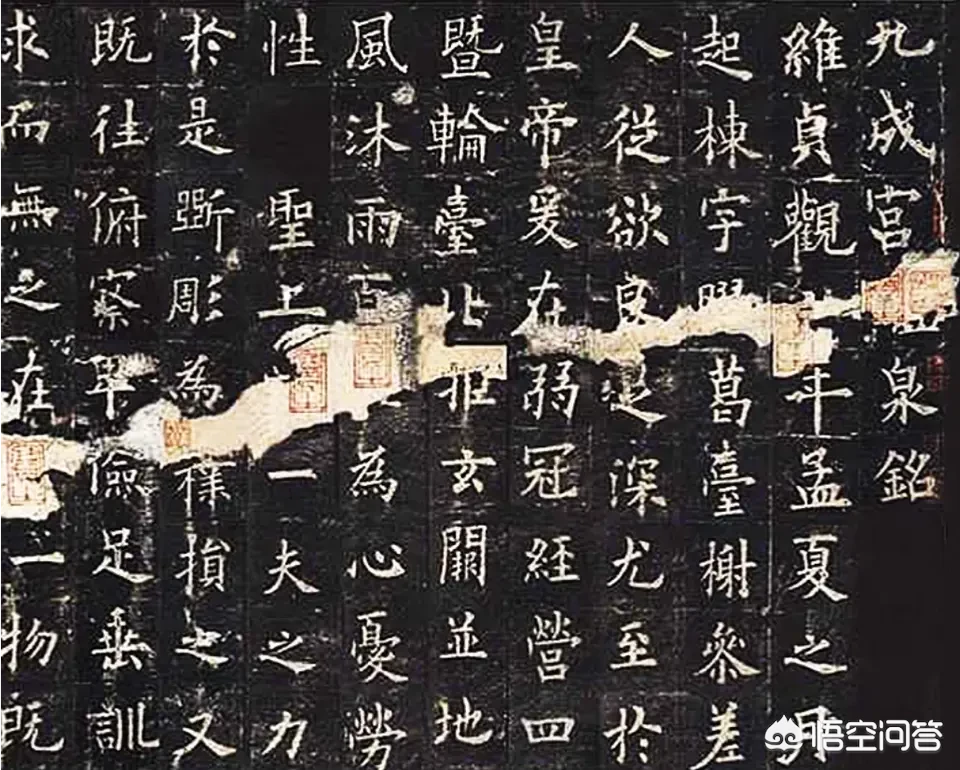 九成宮泉銘
維貞觀年孟夏之月
起棟宇葛臺榭參差
人從欲良足深尤至於
皇帝爰在弱冠經營四
暨輪臺北拒玄闕並地
風沐雨百為心憂勞
性聖上一夫之力
於是斲彫為樸損之又
既往俯察卑儉足垂訓
求而無之在一物既
悟空问答